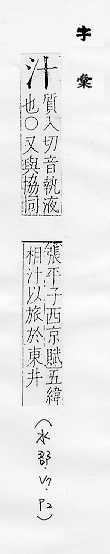 字彙
汁
質入切音執液
也○又與協同
張平子西京賦五緯
相汁以旅於東井
(水部.V7.P2)